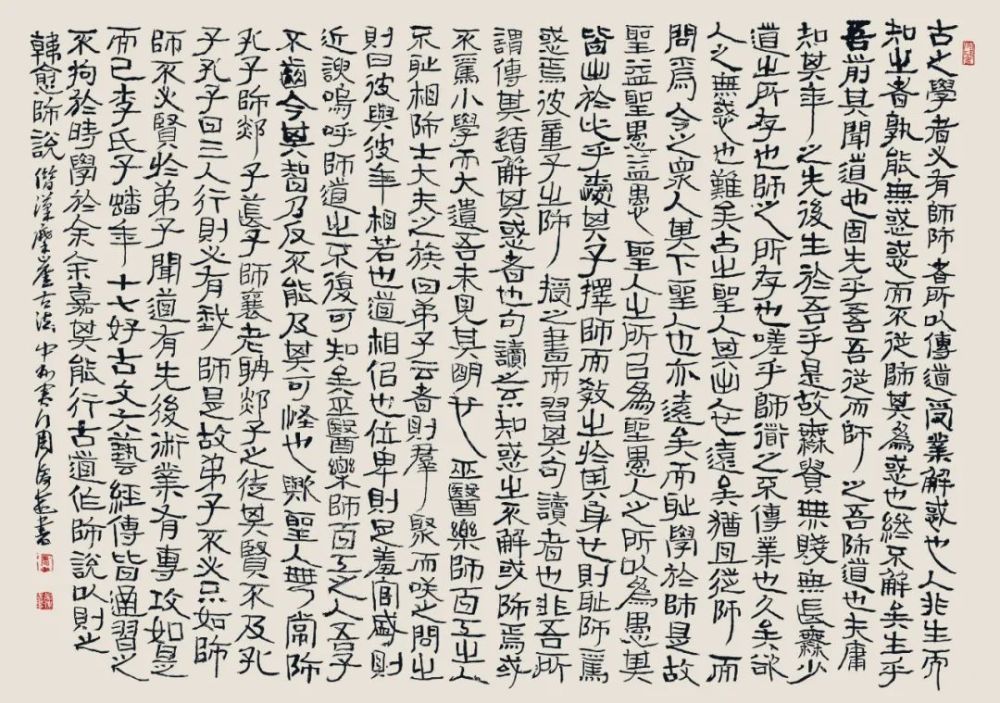 古之學者必有師師者所以傳道受業解惑也人非生而
知之者孰能無惑惑而不從師其為惑也終不解矣生乎
吾前其聞道也固先乎吾吾從而師之吾師道也夫庸
知其年之先後生於吾乎是故無貴無賤無長無少
道之所存也師之所存也嗟乎師衜之不傳業也久矣欲
人之無惑也難矣古之聖人其出人也遠矣猶且從師而
問焉今之眾人其下聖人也亦遠矣而恥學於師是故
聖益聖愚益愚聖人之所已為聖愚人之所以為愚其
皆出於此乎愛其子擇師而教之於其身也則恥師焉
惑焉彼童子之師授之書而習其句讀者也非吾所
謂傳其道解其惑者也句讀之不知惑之不解或師焉或
不焉小學而大遺吾未見其明也巫醫樂師百工之人
不恥相師士大夫之族曰弟子云者則羣聚而咲之問之
則曰彼與彼年相若也道相似也位卑則足羞官盛則
近諛嗚呼師道之不復可知矣巫醫樂師百工之人君子
不齒今其智乃反不能及其可怪也歟聖人無常師
孔子師郯子萇子師襄老聃郯子之徒其賢不及孔
子孔子曰三人行則必有我師是故弟子不必不如師
師不必賢於弟子聞道有先後術業有專攻如是
而已李氏子蟠年十七好古文六藝經傳皆通習之
不拘於時學於余余嘉其能行古道作師說以貽之
韓愈師說 借漢摩崖古法 周 書